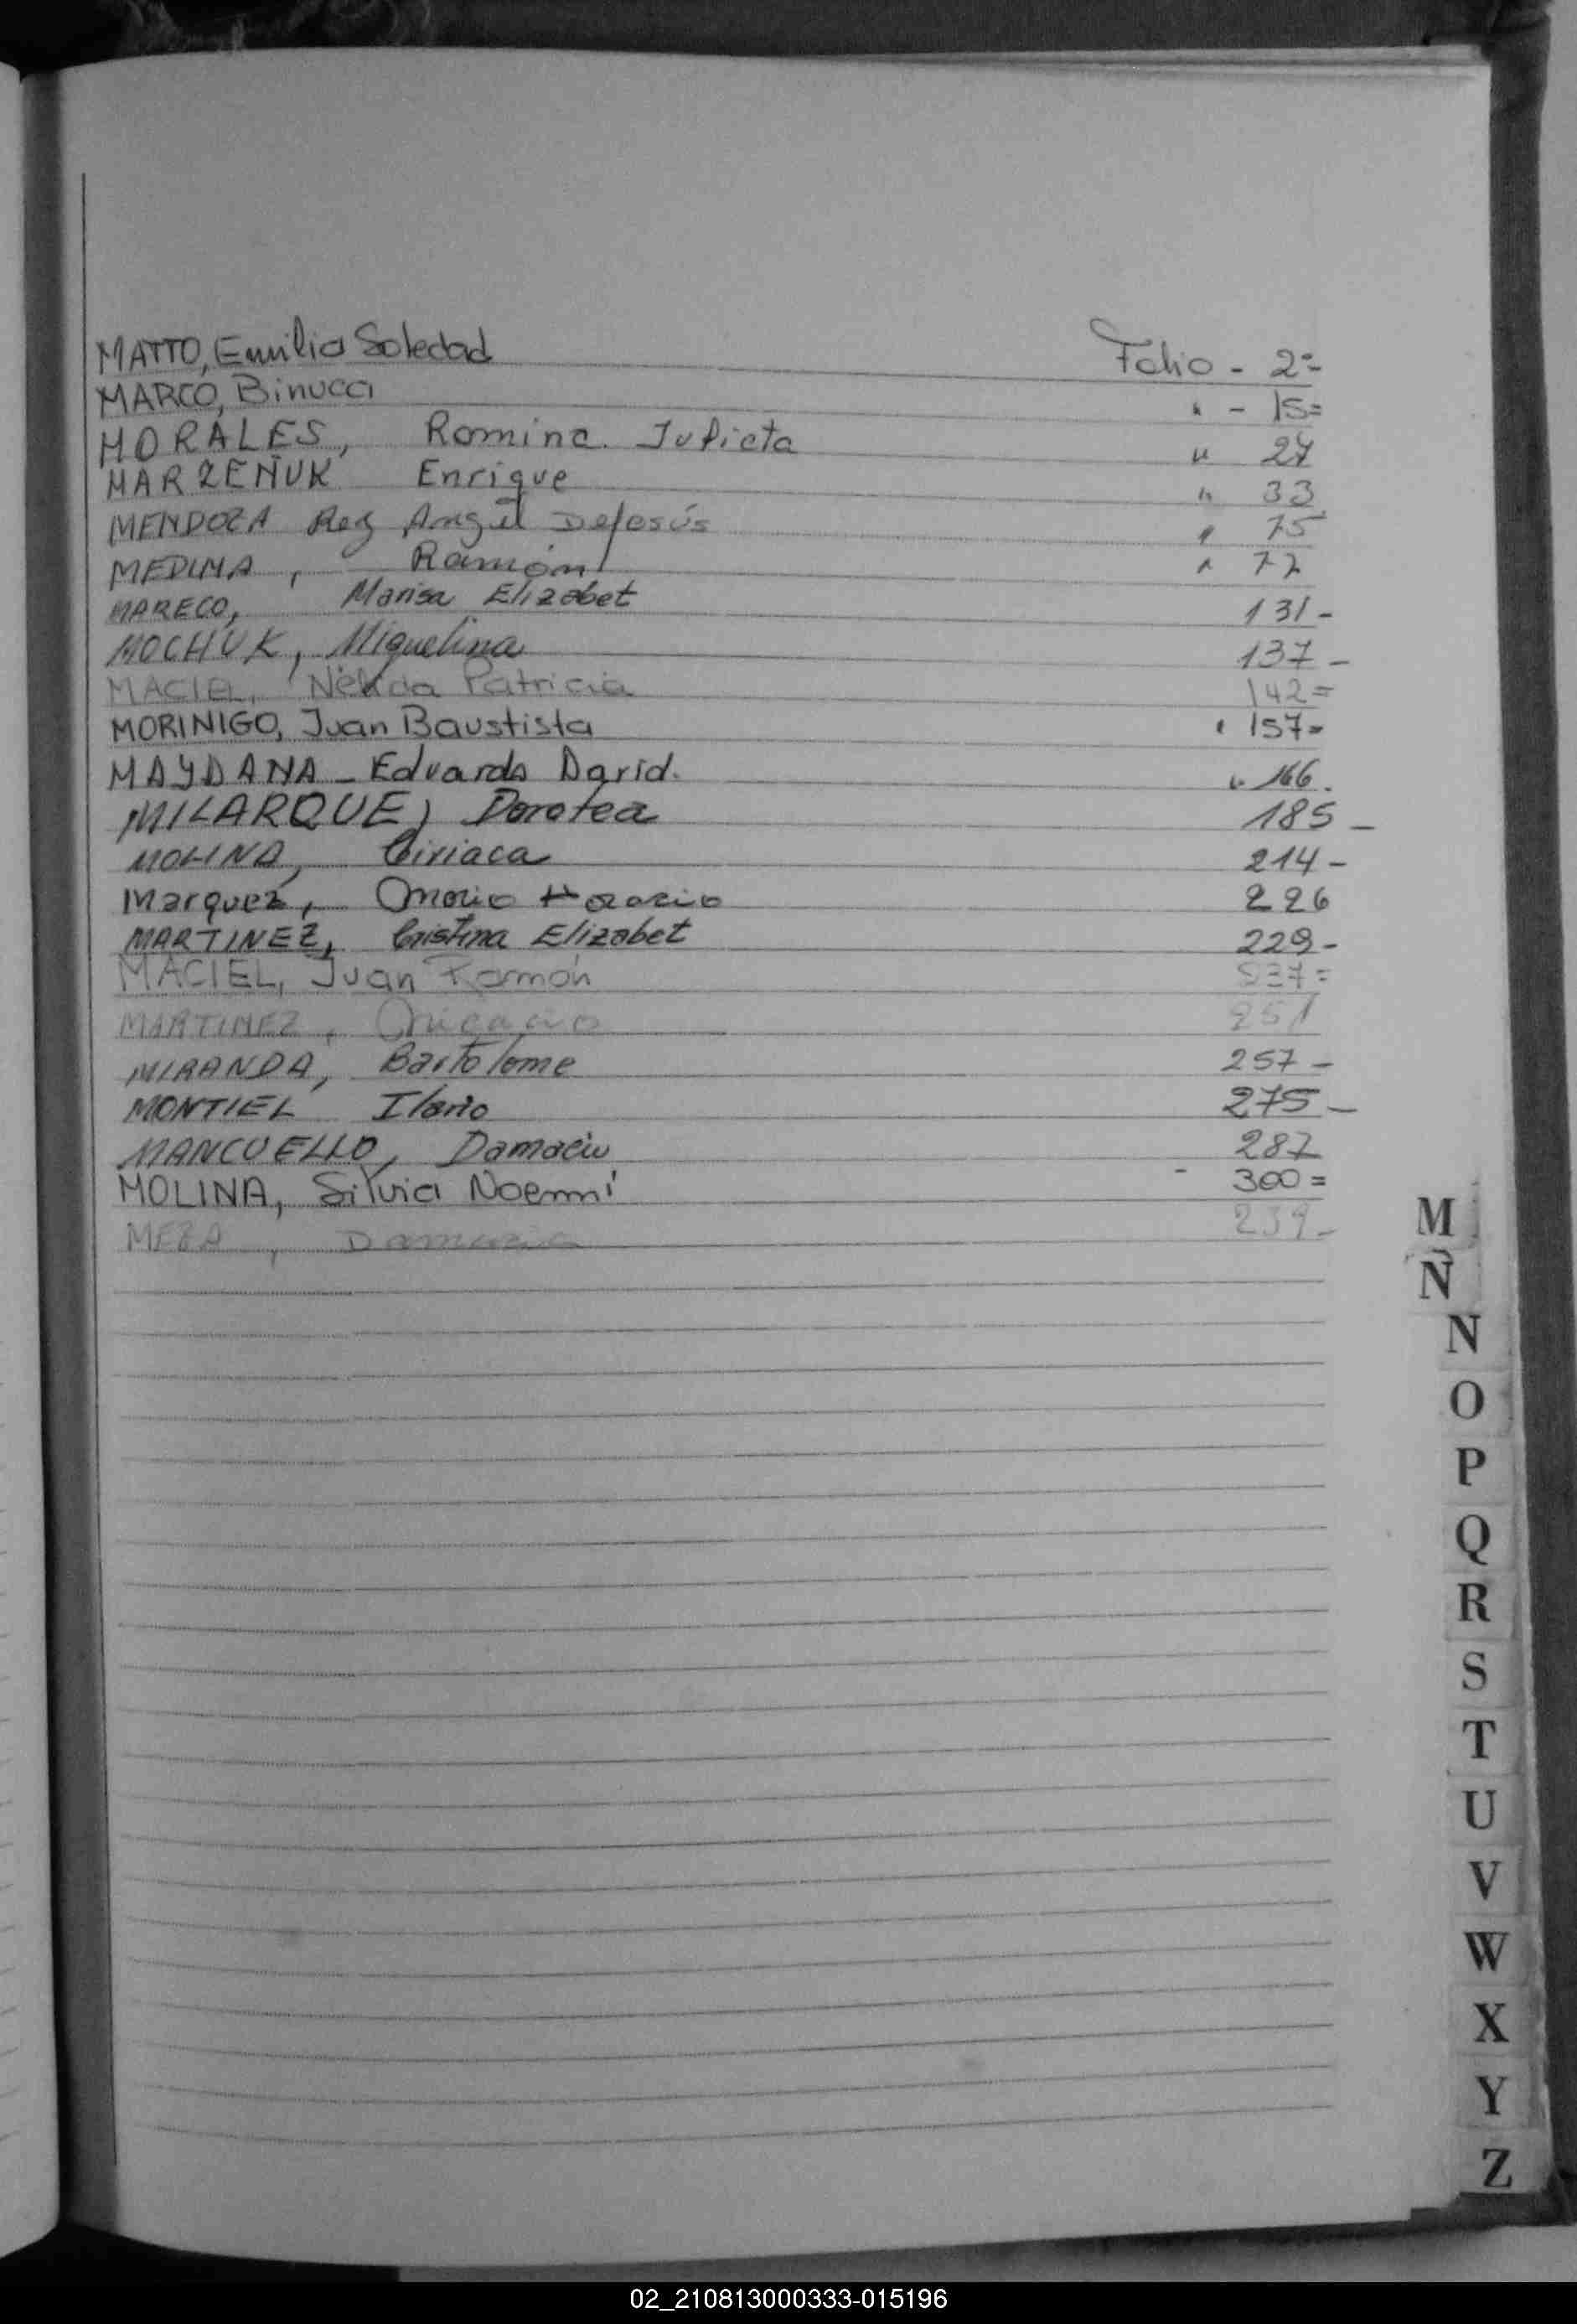 MATTO, Emilia Soledad Folio - 2=
MARCO, Binucci " - 15=
MORALES, Romina Julieta " 27
MARZEÑUK Enrique " 33
MENDOZA Rey Angel Dejesús " 75
MEDINA, Ramón " 77
MARECO, Marisa Elizabet 131-
MOCHUK, Miguelina 137-
MACIEL, Nélida Patricia 142=
MORINIGO, Juan Baustista " 157=
MAYDANA - Eduardo David. " 166.
MILARQUE, Dorotea 185-
MOLINA, Ciriaca 214-
Marquez, Onorio Horacio 226
MARTINEZ, Cristina Elizabet 229-
MACIEL, Juan Ramón 237=
MARTINEZ, 251
MIRANDA, Bartolome 257-
MONTIEL Ilario 275-
MANCUELLO, Damacio 287
MOLINA, Silvia Noemní - 300=
MEZA, Damacia 239-
M
Ñ
N
O
P
Q
R
S
T
U
V
W
X
Y
Z
02_210813000333-015196